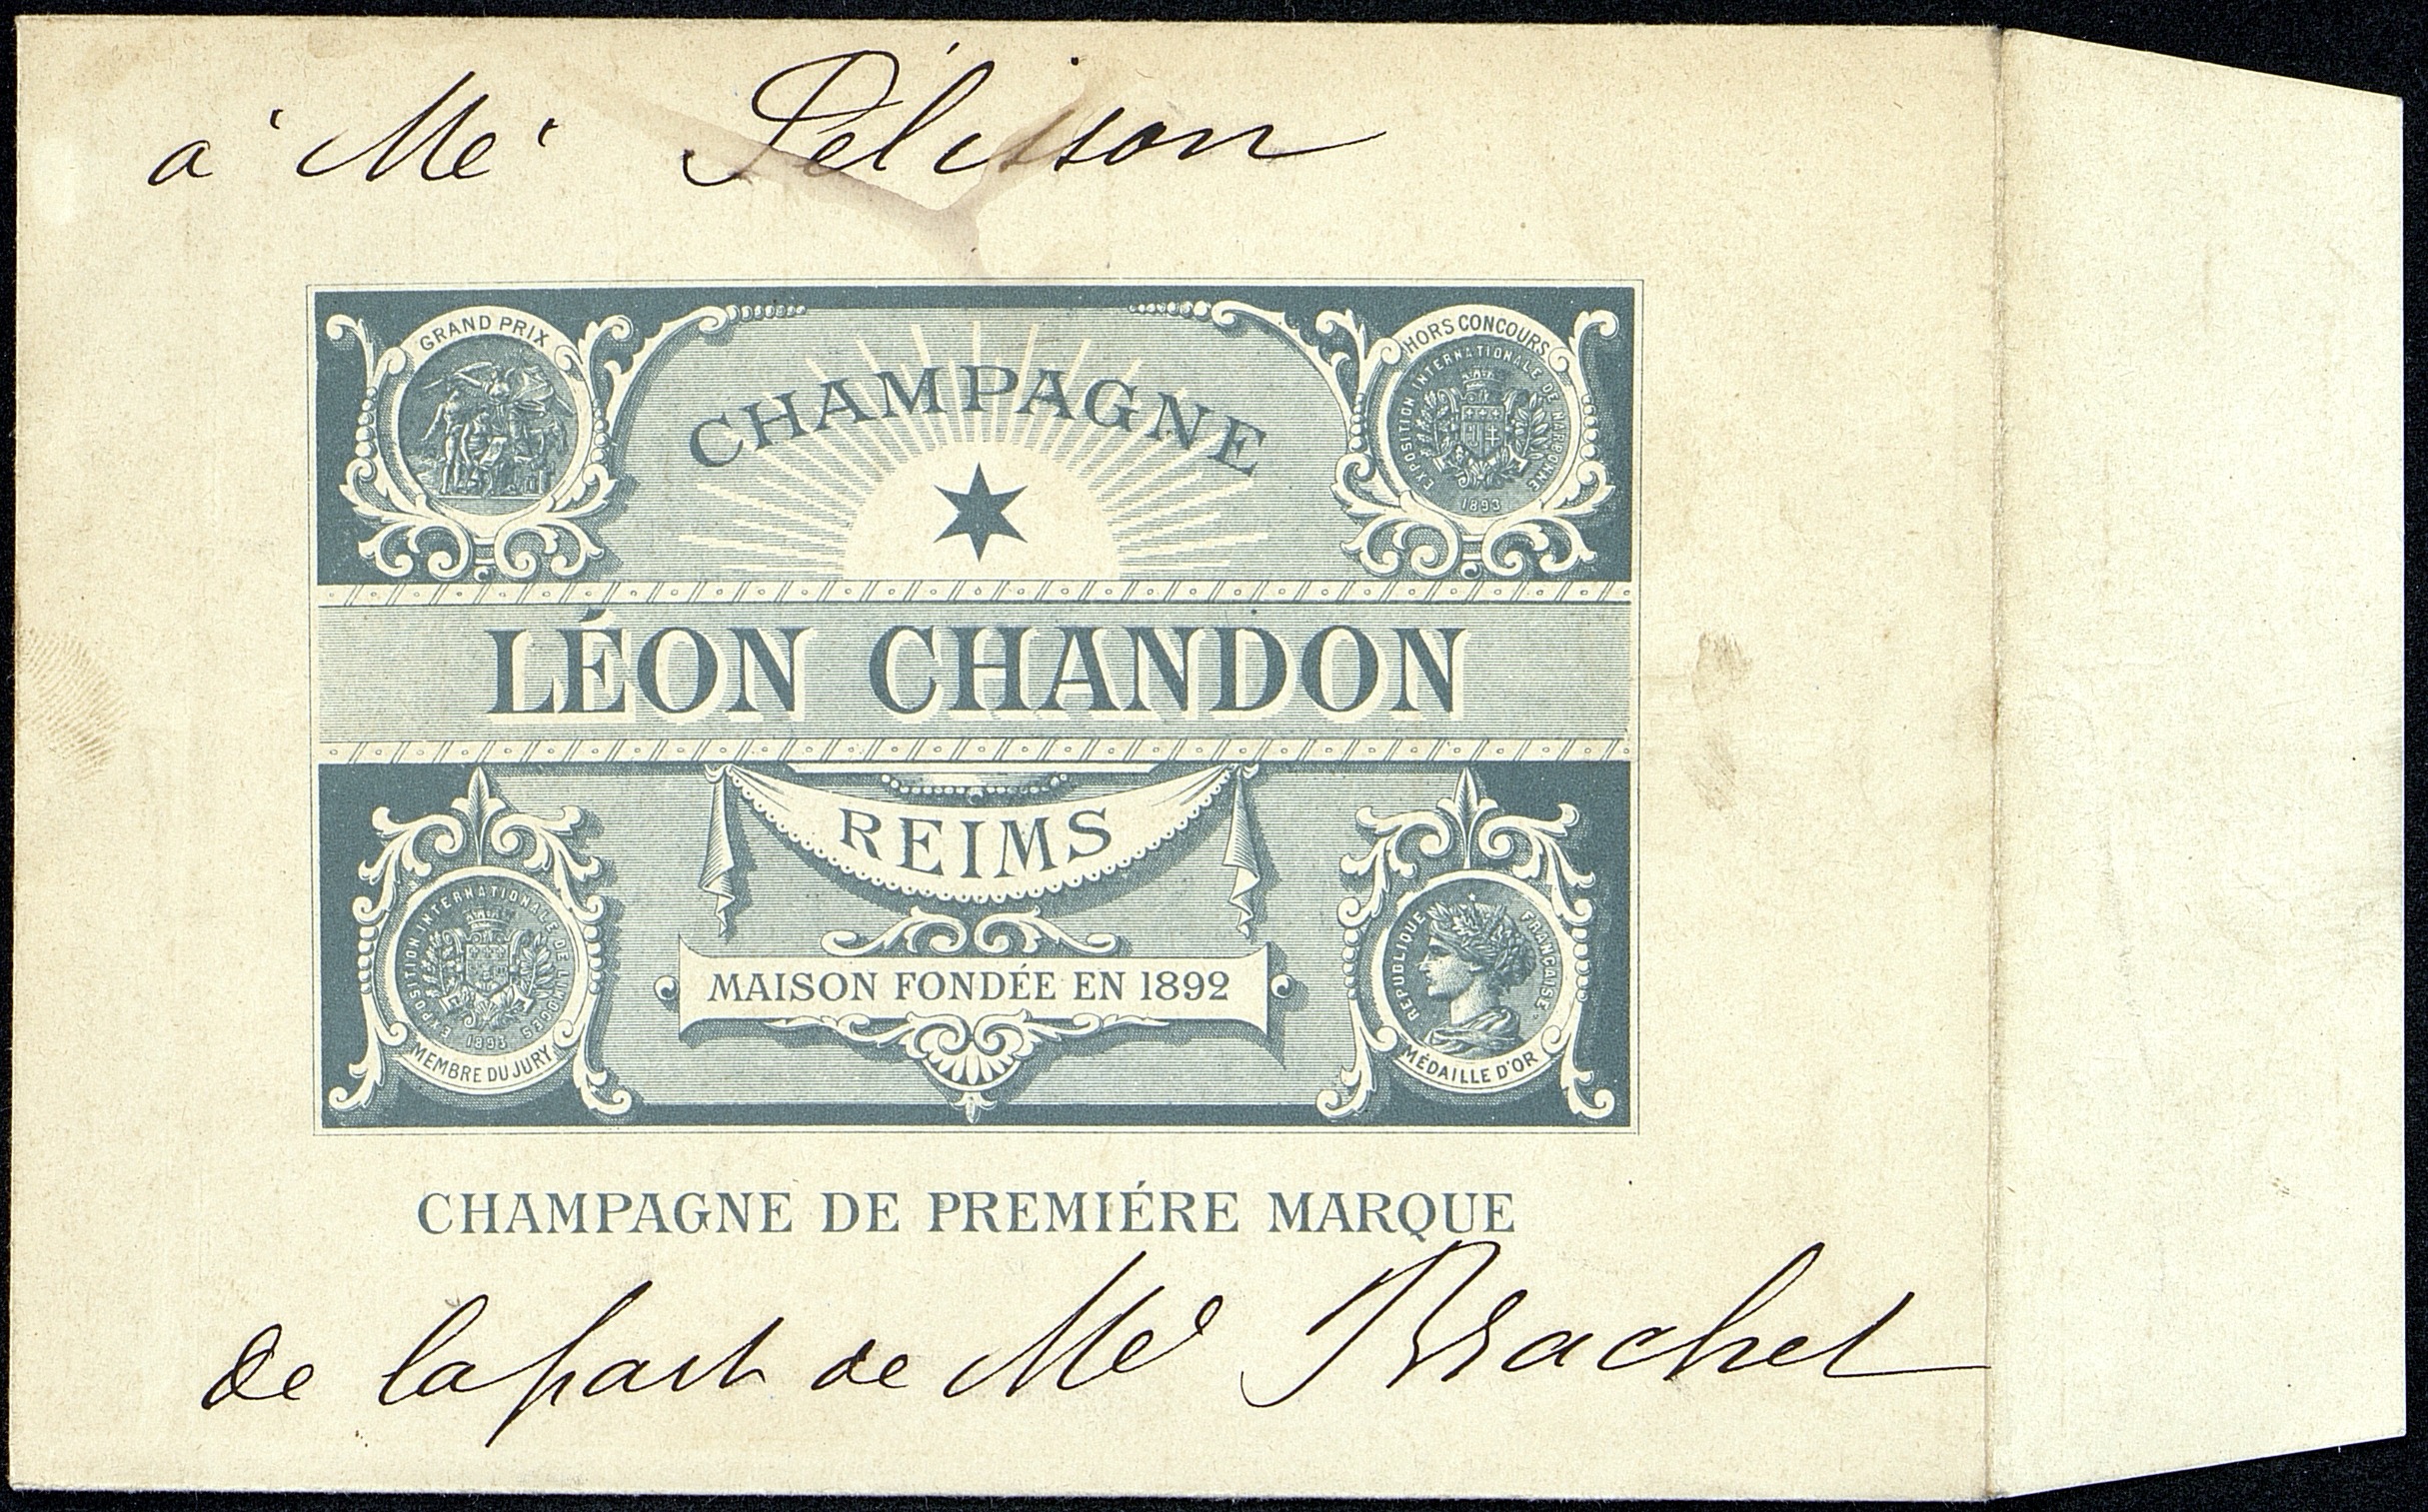 à Me Pélisson
GRAND PRIX
CHAMPAGNE
HORS CONCOURS
EXPOSITION INTERNATIONALE DE NARBONNE
1893
LÉON CHANDON
REIMS
MAISON FONDÉE EN 1892
EXPOSITION INTERNATIONALE DE LIMOGES
1893
MEMBRE DU JURY
REPUBLIQUE FRANÇAISE
MÉDAILLE D'OR
CHAMPAGNE DE PREMIÉRE MARQUE
de la part de Me Brachet